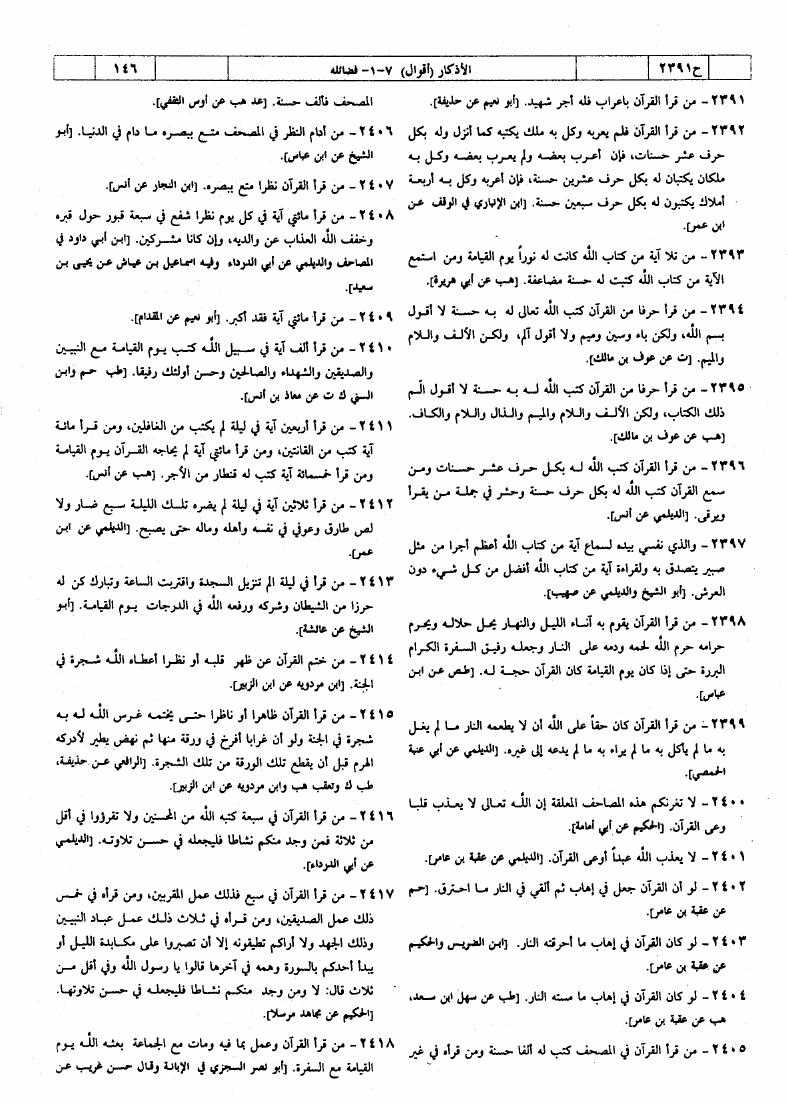 ح٢٣٩١
الأذكار (أقوال) ٧-١- فضائله
١٤٦
٢٣٩١- من قرأ القرآن باعراب فله أجر شهيد. [أبو نعيم عن حذيفة].
٢٣٩٢- من قرأ القرآن فلم يعربه وكل به ملك يكتبه كما أنزل وله بكل
حرف عشر حسنات، فإن أعرب بعضه ولم يعرب بعضه وكل به
ملكان يكتبان له بكل حرف عشرين حسنة، فإن أعربه وكل به أربعة
أملاك يكتبون له بكل حرف سبعين حسنة. [ابن الإنباري في الوقف عن
ابن عمر].
٢٣٩٣- من تلا آية من كتاب اللّه كانت له نوراً يوم القيامة ومن استمع
الآية من كتاب اللّه كتبت له حسنة مضاعفة. [هب عن أبي هريرة].
٢٣٩٤- من قرأ حرفا من القرآن كتب اللّه تعالى له به حسنة لا أقول
بسم اللّه، ولكن باء وسين وميم ولا أقول آلم، ولكن الألف واللام
والميم. [ت عن عوف بن مالك].
٢٣٩٥- من قرأ حرفا من القرآن كتب اللّه له به حسنة لا أقول الم
ذلك الكتاب، ولكن الألف واللام والميم والذال واللام والكاف.
[هب عن عوف بن مالك].
٢٣٩٦- من قرأ القرآن كتب اللّه له بكل حرف عشر حسنات ومن
سمع القرآن كتب اللّه له بكل حرف حسنة وحشر في جملة من يقرأ
ويرقى. [الديلمي عن أنس].
٢٣٩٧- والذي نفسي بيده لسماع آية من كتاب اللّه أعظم أجرا من مثل
صبير يتصدق به ولقراءة آية من كتاب اللّه أفضل من كل شيء دون
العرش. [أبو الشيخ والديلمي عن صهيب].
٢٣٩٨- من قرأ القرآن يقوم به آناء الليل والنهار يحل حلاله ويحرم
حرامه حرم اللّه لحمه ودمه على النار وجعله رفيق السفرة الكرام
البررة حتى إذا كان يوم القيامة كان القرآن حجة له. [طص عن ابن
عباس].
٢٣٩٩- من قرأ القرآن كان حقاً على اللّه أن لا يطعمه النار ما لم يغل
به ما لم يأكل به ما لم يراء به ما لم يدعه إلى غيره. [الديلمي عن أبي عنبة
الحمصي].
٢٤٠٠- لا تغرنكم هذه المصاحف المعلقة إن اللّه تعالى لا يعذب قلبا
وعى القرآن. [الحكيم عن أبي أمامة].
٢٤٠١- لا يعذب اللّه عبداً أوعى القرآن. [الديلمي عن عقبة بن عامر].
٢٤٠٢- لو أن القرآن جعل في إهاب ثم ألقي في النار ما احترق. [حم
عن عقبة بن عامر].
٢٤٠٣- لو كان القرآن في إهاب ما أحرقته النار. [ابن الضريس والحكيم
عن عقبة بن عامر].
٢٤٠٤- لو كان القرآن في إهاب ما مسته النار. [طب عن سهل ابن سعد،
هب عن عقبة بن عامر].
٢٤٠٥- من قرأ القرآن في المصحف كتب له ألفا حسنة ومن قرأه في غير
المصحف فألف حسنة. [عد هب عن أوس الثقفي].
٢٤٠٦- من أدام النظر في المصحف متع ببصره ما دام في الدنيا. [أبو
الشيخ عن ابن عباس].
٢٤٠٧- من قرأ القرآن نظرا متع ببصره. [ابن النجار عن أنس].
٢٤٠٨- من قرأ مائتي آية في كل يوم نظرا شفع في سبعة قبور حول قبره
وخفف اللّه العذاب عن والديه، وإن كانا مشركين. [ابن أبي داود في
المصاحف والديلمي عن أبي الدرداء وفيه اسماعيل بن عياش عن يحيى بن
سعيد].
٢٤٠٩- من قرأ مائتي آية فقد أكبر. [أبو نعيم عن المقدام].
٢٤١٠- من قرأ ألف آية في سبيل اللّه كتب يوم القيامة مع النبيين
والصديقين والشهداء والصالحين وحسن أولئك رفيقا. [طب حم وابن
السني ك ت عن معاذ بن أنس].
٢٤١١- من قرأ أربعين آية في ليلة لم يكتب من الغافلين، ومن قرأ مائة
آية كتب من القانتين، ومن قرأ مائتي آية لم يحاجه القرآن يوم القيامة
ومن قرأ خمسمائة آية كتب له قنطار من الأجر. [هب عن أنس].
٢٤١٢- من قرأ ثلاثين آية في ليلة لم يضره تلك الليلة سبع ضار ولا
لص طارق وعوفي في نفسه وأهله وماله حتى يصبح. [الديلمي عن ابن
عمر].
٢٤١٣- من قرأ في ليلة الم تنزيل السجدة واقتربت الساعة وتبارك كن له
حرزا من الشيطان وشركه ورفعه اللّه في الدرجات يوم القيامة. [أبو
الشيخ عن عائشة].
٢٤١٤- من ختم القرآن عن ظهر قلبه أو نظرا أعطاه اللّه شجرة في
الجنة. [ابن مردويه عن ابن الزبير].
٢٤١٥- من قرأ القرآن ظاهرا أو ناظرا حتى يختمه غرس اللّه له به
شجرة في الجنة ولو أن غرابا أفرخ في ورقة منها ثم نهض يطير لأدركه
الهرم قبل أن يقطع تلك الورقة من تلك الشجرة. [الرافعي عن حذيفة،
طب ك وتعقب هب وابن مردويه عن ابن الزبير].
٢٤١٦- من قرأ القرآن في سبعة كتبه اللّه من المحسنين ولا تقرؤوا في أقل
من ثلاثة فمن وجد منكم نشاطا فليجعله في حسن تلاوته. [الديلمي
عن أبي الدرداء].
٢٤١٧- من قرأ القرآن في سبع فذلك عمل المقربين، ومن قرأه في خمس
ذلك عمل الصديقين، ومن قرأه في ثلاث ذلك عمل عباد النبيين
وذلك الجهد ولا أراكم تطيقونه إلا أن تصبروا على مكابدة الليل أو
يبدأ أحدكم بالسورة وهمه في آخرها قالوا يا رسول اللّه وفي أقل من
ثلاث قال: لا ومن وجد منكم نشاطا فليجعله في حسن تلاوتها.
[الحكيم عن مجاهد مرسلا].
٢٤١٨- من قرأ القرآن وعمل بما فيه ومات مع الجماعة بعثه اللّه يوم
القيامة مع السفرة. [أبو نصر السجزي في الإبانة وقال حسن غريب عن